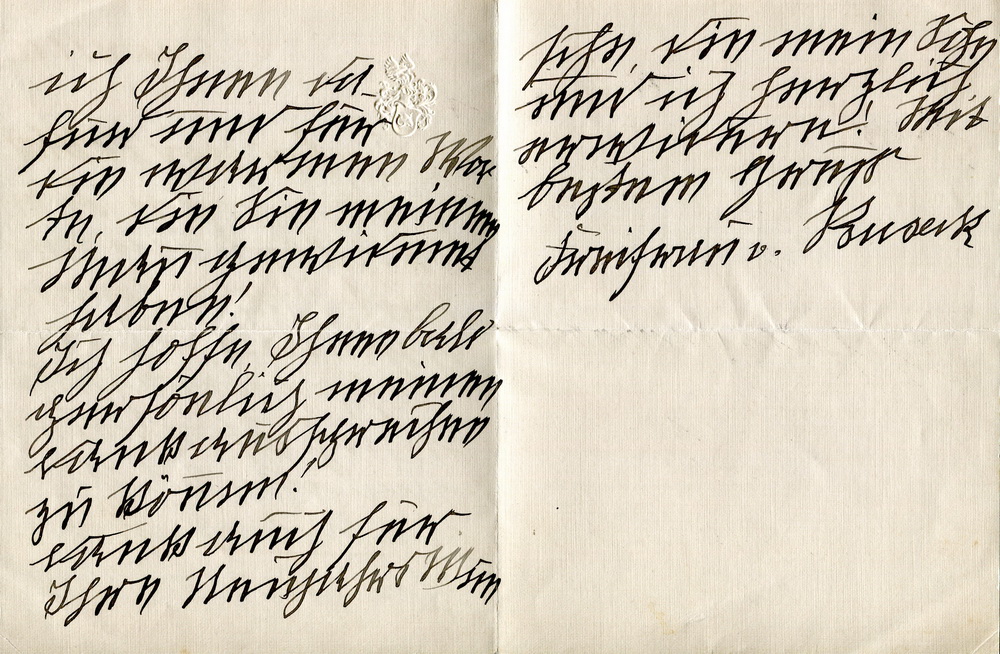 ich Ihnen da-
für und für
die warmen Wor-
te, die Sie meinem
Mann gewidmet
haben!
Ich hoffe, Ihnen bald
persönlich meinen
Dank aussprechen
zu können!
Dank auch für
Ihre Neujahrs Wün
sche, die mein Sohn
und ich herzlich
erwidern! Mit
bestem Gruß
Freifrau v. Buseck